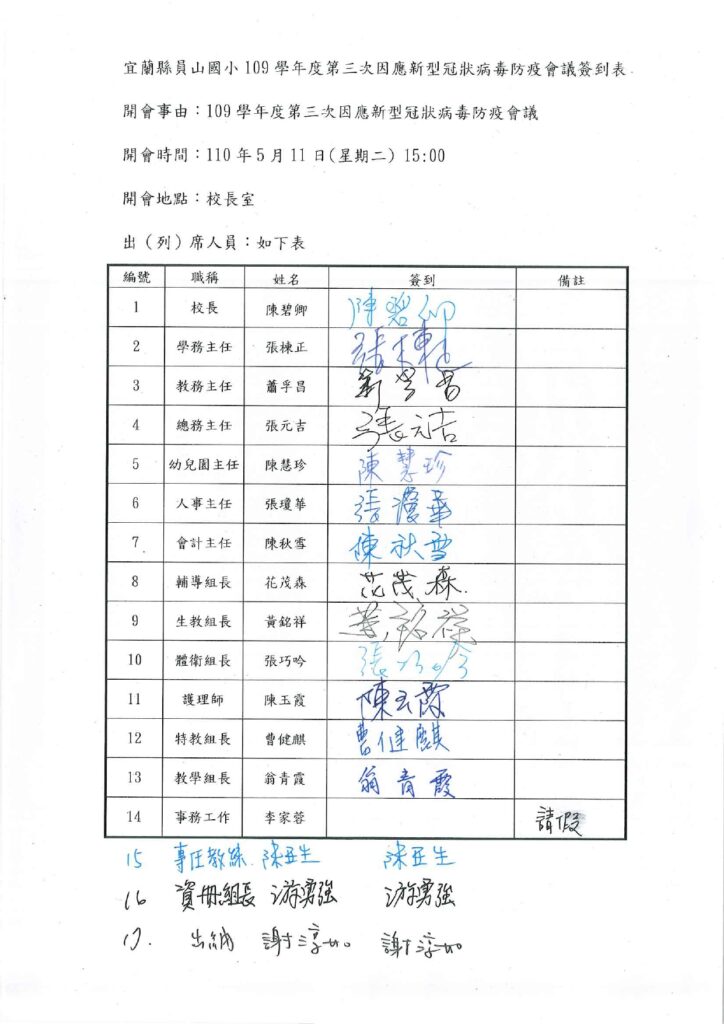 宜蘭縣員山國小 109 學年度第三次因應新型冠狀病毒防疫會議簽到表
開會事由：109 學年度第三次因應新型冠狀病毒防疫會議
開會時間：110 年 5 月 11 日(星期二) 15:00
開會地點：校長室
出（列）席人員：如下表
編號 職稱 姓名 簽到 備註
1 校長 陳碧卿 陳碧卿
2 學務主任 張棟正 張棟正
3 教務主任 蕭孚昌
4 總務主任 張元吉 張元吉
5 幼兒園主任 陳慧珍 陳慧珍
6 人事主任 張瓊華 張瓊華
7 會計主任 陳秋雪 陳秋雪
8 輔導組長 花茂森 花茂森
9 生教組長 黃銘祥 黃銘祥
10 體衛組長 張巧吟 張巧吟
11 護理師 陳玉霞 陳玉霞
12 特教組長 曹健麒 曹健麒
13 教學組長 翁青霞 翁青霞
14 事務工作 李家蓉 請假
15 專任教練 陳亞生 陳亞生
16 資冊組長 游勇強 游勇強
17. 出納 謝淳如 謝淳如